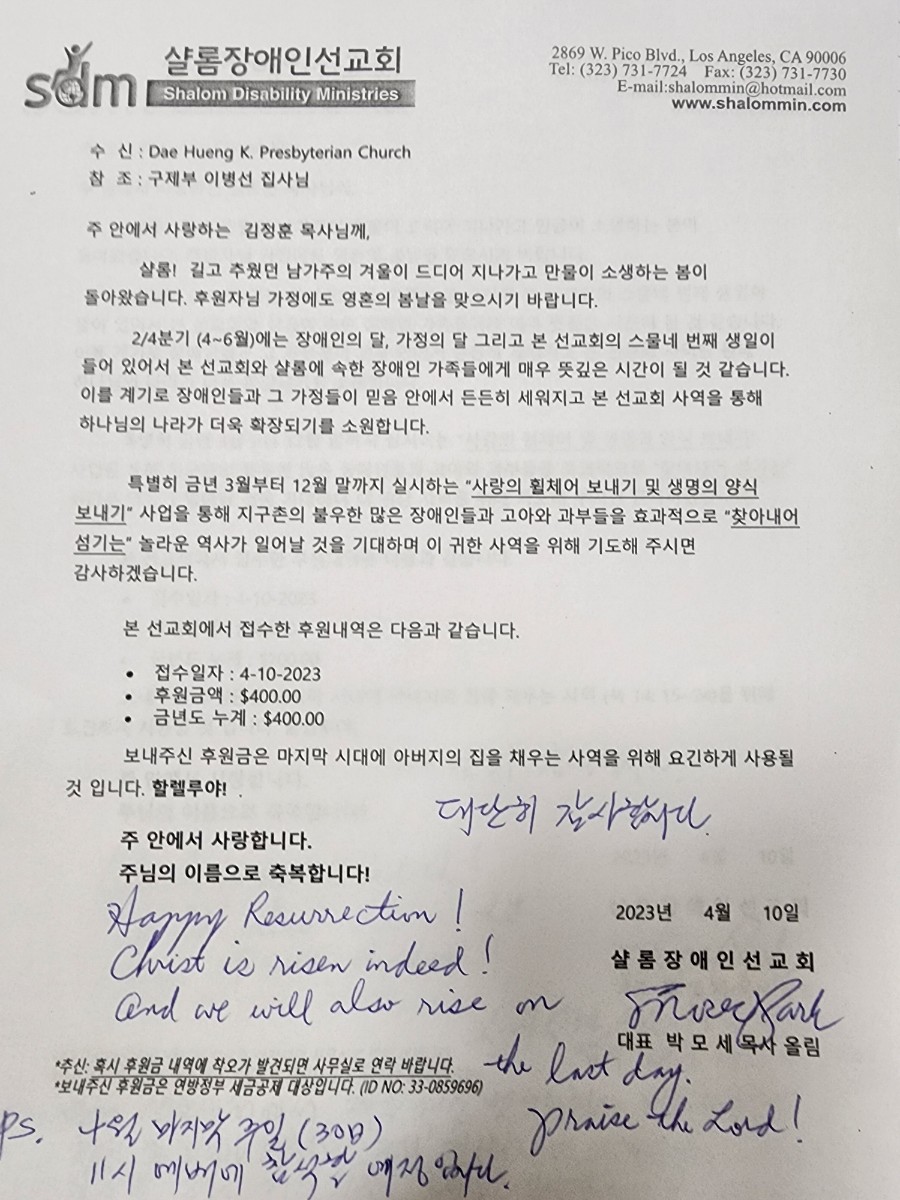 sdm
샬롬장애인선교회
Shalom Disability Ministries
2869 W. Pico Blvd., Los Angeles, CA 90006
Tel: (323) 731-7724 Fax: (323) 731-7730
E-mail:shalommin@hotmail.com
www.shalommin.com
수 신 : Dae Hueng K. Presbyterian Church
참 조 : 구제부 이병선 집사님
주 안에서 사랑하는 김정훈 목사님께,
샬롬! 길고 추웠던 남가주의 겨울이 드디어 지나가고 만물이 소생하는 봄이
돌아왔습니다. 후원자님 가정에도 영혼의 봄날을 맞으시기 바랍니다.
2/4분기 (4~6월)에는 장애인의 달, 가정의 달 그리고 본 선교회의 스물네 번째 생일이
들어 있어서 본 선교회와 샬롬에 속한 장애인 가족들에게 매우 뜻깊은 시간이 될 것 같습니다.
이를 계기로 장애인들과 그 가정들이 믿음 안에서 든든히 세워지고 본 선교회 사역을 통해
하나님의 나라가 더욱 확장되기를 소원합니다.
특별히 금년 3월부터 12월 말까지 실시하는 "사랑의 휠체어 보내기 및 생명의 양식
보내기" 사업을 통해 지구촌의 불우한 많은 장애인들과 고아와 과부들을 효과적으로 "찾아내어
섬기는" 놀라운 역사가 일어날 것을 기대하며 이 귀한 사역을 위해 기도해 주시면
감사하겠습니다.
본 선교회에서 접수한 후원내역은 다음과 같습니다.
• 접수일자 : 4-10-2023
• 후원금액 : $400.00
• 금년도 누계 : $400.00
보내주신 후원금은 마지막 시대에 아버지의 집을 채우는 사역을 위해 요긴하게 사용될
것 입니다. 할렐루야!
대단히 감사합니다.
주 안에서 사랑합니다.
주님의 이름으로 축복합니다!
Happy Resurrection!
Christ is risen indeed!
and we will also rise on
the last day.
Praise the Lord!
2023년 4월 10일
샬롬장애인선교회
Moses Park
대표 박모세 목사 올림
*추신: 혹시 후원금 내역에 착오가 발견되면 사무실로 연락 바랍니다.
*보내주신 후원금은 연방정부 세금공제 대상입니다. (ID NO: 33-0859696)
PS. 4월 마지막 주일 (30일)
11시 예배에 참석할 예정입니다.